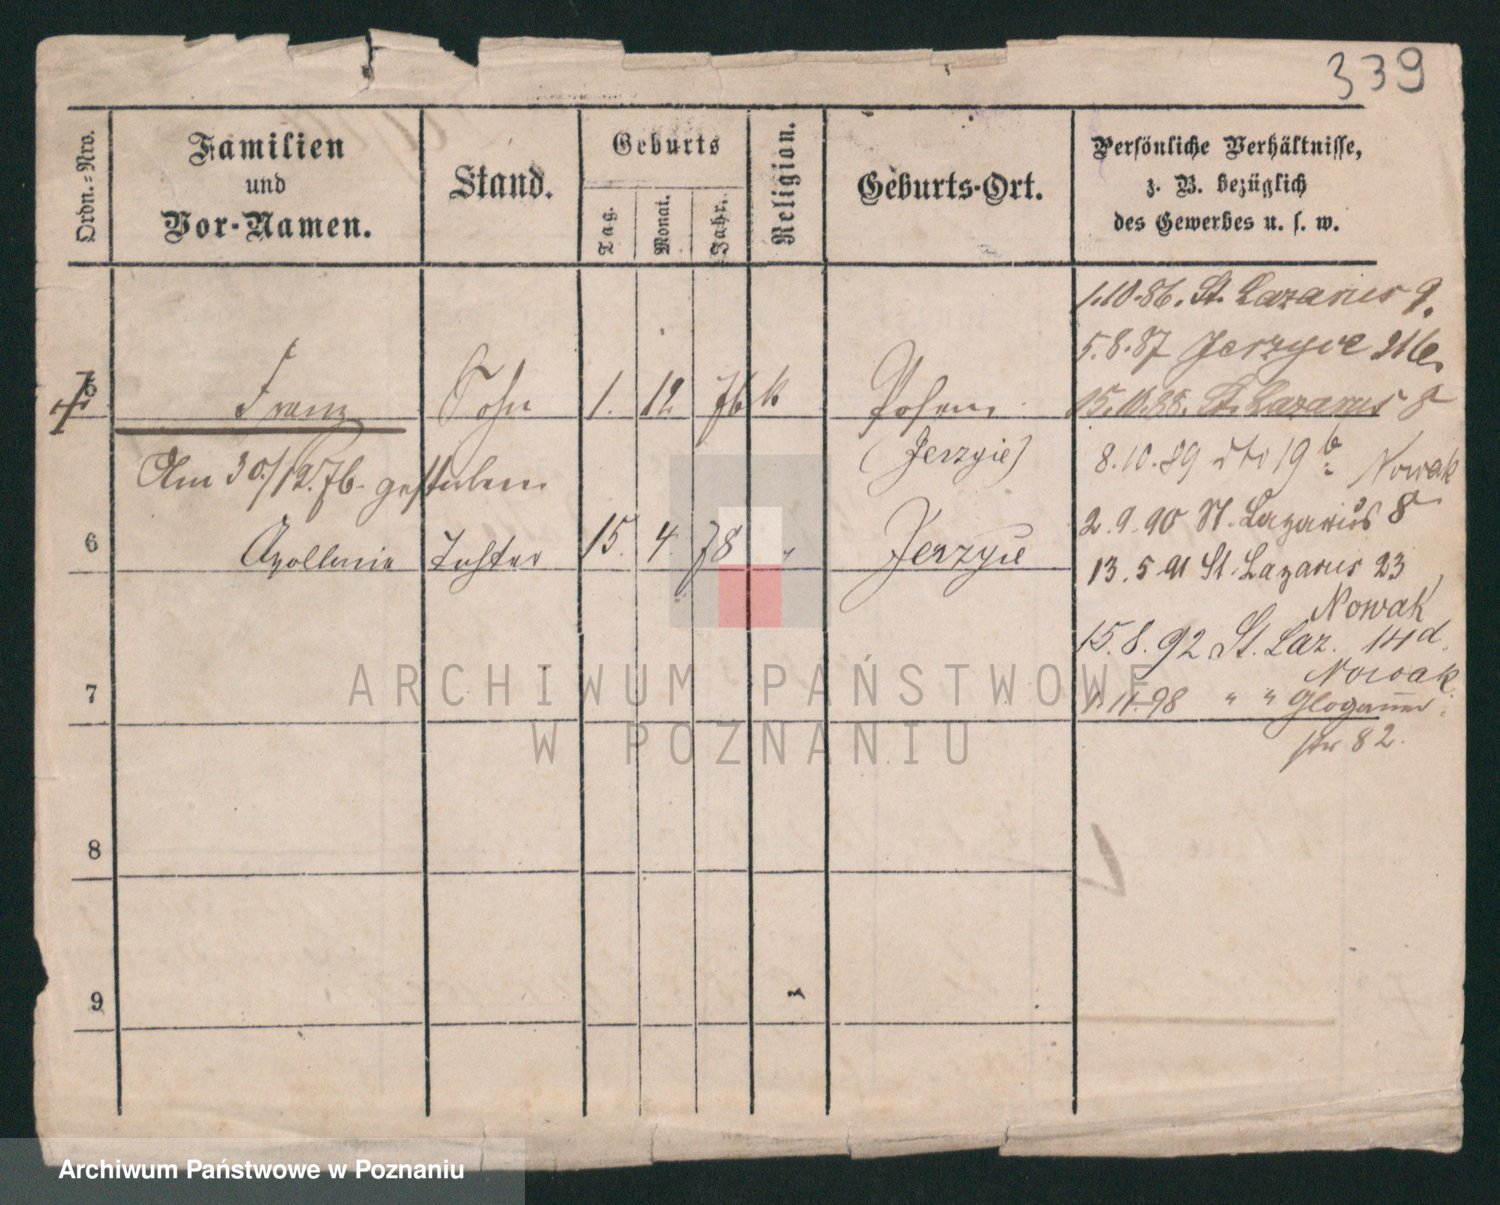 339
Ordn.-Nro.
Familien
und
Vor-Namen.
Stand.
Geburts
Tag.
Monat.
Jahr.
Religion.
Geburts-Ort.
Persönliche Verhältnisse,
z. B. bezüglich
des Gewerbes u. s. w.
1.10.86. St. Lazarus 9.
5.8.87 Jerzyce 21b.
5 Franz Sohn 1. 12. 76 k. Posen
15.10.88. St. Lazarus 8
(Jerzyce)
8.10.89 dto 19b Nowak
Am 30./12. 76. gestorben
2.9.90 St. Lazarus 8
6 Apollonie Tochter 15. 4. 78 " Jerzyce
13.5 91 St. Lazarus 23
Nowak
15.8.92 St. Laz. 14d.
Nowak
7
1.11.98 " " Glogauer
str 82.
8
9
ARCHIWUM PAŃSTWOWE
W POZNANIU
Archiwum Państwowe w Poznaniu